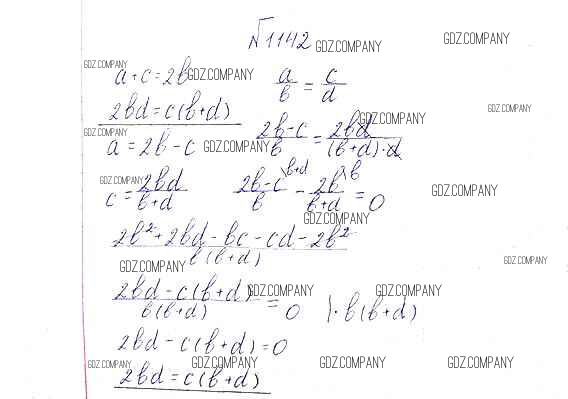 №1142
GDZ.COMPANY GDZ.COMPANY
GDZ.COMPANY
a + c = 2b GDZ.COMPANY a/b = c/d
2bd = c(b+d) GDZ.COMPANY GDZ.COMPANY
GDZ.COMPANY
a = 2b - c GDZ.COMPANY (2b-c)/b = 2bd/((b+d)·d)
GDZ.COMPANY
c = 2bd/(b+d) (2b-c)/b \b+d - 2b/(b+d) \b = 0 GDZ.COMPANY
GDZ.COMPANY
(2b² + 2bd - bc - cd - 2b²)/(b(b+d))
GDZ.COMPANY GDZ.COMPANY
(2bd - c(b+d))/(b(b+d)) = 0 GDZ.COMPANY GDZ.COMPANY |·b(b+d)
2bd - c(b+d) = 0
GDZ.COMPANY GDZ.COMPANY GDZ.COMPANY GDZ.COMPANY
2bd = c(b+d)